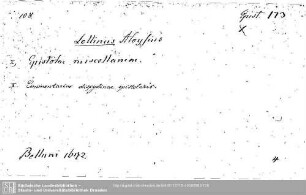 108
Epist. 173
X
Lollinus Aloysius
Epistolae miscellaneae.
Commentarius disciplinae epistolaris.
Belluni 1642.
4
Sächsische Landesbibliothek -
Staats- und Universitätsbibliothek Dresden